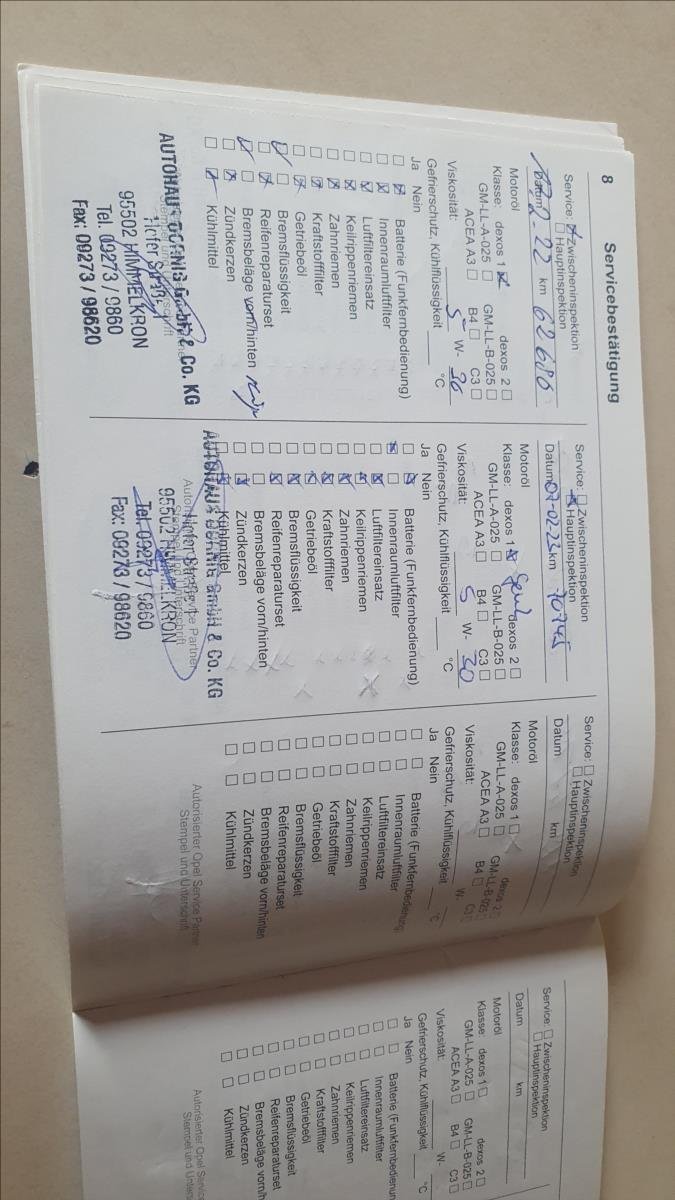 8 Servicebestätigung
Service: ☒ Zwischeninspektion
☐ Hauptinspektion
Datum 2-22 km 62686
Motoröl
Klasse: dexos 1 ☒ dexos 2 ☐
GM-LL-A-025 ☐ GM-LL-B-025 ☐
ACEA A3 ☐ B4 ☐ C3 ☐
Viskosität: 5 W- 30
Gefrierschutz, Kühlflüssigkeit ____ °C
Ja Nein
☐ ☒ Batterie (Funkfernbedienung)
☐ ☒ Innenraumluftfilter
☐ ☒ Luftfiltereinsatz
☐ ☒ Keilrippenriemen
☐ ☒ Zahnriemen
☐ ☒ Kraftstofffilter
☐ ☒ Getriebeöl
☒ ☐ Bremsflüssigkeit
☐ ☒ Reifenreparaturset
☒ ☐ Bremsbeläge vorn/hinten
☐ ☒ Zündkerzen
☐ ☒ Kühlmittel
AUTOHAUS GmbH & Co. KG
95502 HIMMELKRON
Tel. 09273 / 9860
Fax: 09273 / 98620
Service: ☐ Zwischeninspektion
☒ Hauptinspektion
Datum 07-02-23 km 70745
Motoröl
Klasse: dexos 1 ☒ dexos 2 ☐
GM-LL-A-025 ☐ GM-LL-B-025 ☐
ACEA A3 ☐ B4 ☐ C3 ☐
Viskosität: 5 W- 30
Gefrierschutz, Kühlflüssigkeit ____ °C
Ja Nein
☐ ☒ Batterie (Funkfernbedienung)
☒ ☐ Innenraumluftfilter
☐ ☒ Luftfiltereinsatz
☐ ☒ Keilrippenriemen
☐ ☒ Zahnriemen
☐ ☒ Kraftstofffilter
☐ ☒ Getriebeöl
☐ ☒ Bremsflüssigkeit
☐ ☒ Reifenreparaturset
☐ ☐ Bremsbeläge vorn/hinten
☐ ☒ Zündkerzen
Kühlmittel
AUTOHAUS GmbH & Co. KG
95502 HIMMELKRON
Tel. 09273 / 9860
Fax: 09273 / 98620
Service: ☐ Zwischeninspektion
☐ Hauptinspektion
Datum km
Motoröl
Klasse: dexos 1 ☐ dexos 2 ☐
GM-LL-A-025 ☐ GM-LL-B-025 ☐
ACEA A3 ☐ B4 ☐ C3 ☐
Viskosität: W-
Gefrierschutz, Kühlflüssigkeit ____ °C
Ja Nein
☐ ☐ Batterie (Funkfernbedienung)
☐ ☐ Innenraumluftfilter
☐ ☐ Luftfiltereinsatz
☐ ☐ Keilrippenriemen
☐ ☐ Zahnriemen
☐ ☐ Kraftstofffilter
☐ ☐ Getriebeöl
☐ ☐ Bremsflüssigkeit
☐ ☐ Reifenreparaturset
☐ ☐ Bremsbeläge vorn/hinten
☐ ☐ Zündkerzen
☐ ☐ Kühlmittel
Autorisierter Opel Service Partner
Stempel und Unterschrift
Service: ☐ Zwischeninspektion
☐ Hauptinspektion
Datum km
Motoröl
Klasse: dexos 1 ☐ dexos 2 ☐
GM-LL-A-025 ☐ GM-LL-B-025 ☐
ACEA A3 ☐ B4 ☐ C3 ☐
Viskosität: W-
Gefrierschutz, Kühlflüssigkeit ____ °C
Ja Nein
☐ ☐ Batterie (Funkfernbedienun
☐ ☐ Innenraumluftfilter
☐ ☐ Luftfiltereinsatz
☐ ☐ Keilrippenriemen
☐ ☐ Zahnriemen
☐ ☐ Kraftstofffilter
☐ ☐ Getriebeöl
☐ ☐ Bremsflüssigkeit
☐ ☐ Reifenreparaturset
☐ ☐ Bremsbeläge vorn/h
☐ ☐ Zündkerzen
☐ ☐ Kühlmittel
Autorisierter Opel Servic
Stempel und Unters